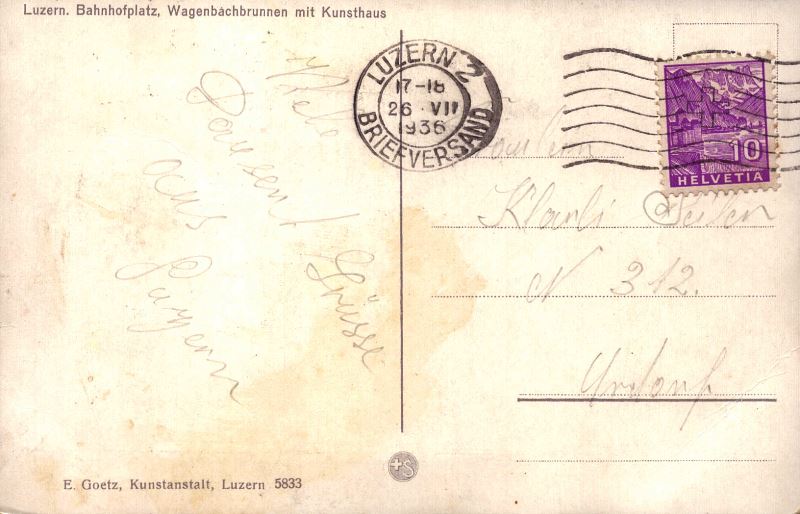 Luzern. Bahnhofplatz, Wagenbachbrunnen mit Kunsthaus
Viele
Tausent Grüsse
aus
Luzern
LUZERN 2
17-18
26. VII
1936
BRIEFVERSAND
10
HELVETIA
Fräulein
Klarli
N 312.
Urdorf
E. Goetz, Kunstanstalt, Luzern 5833
+S